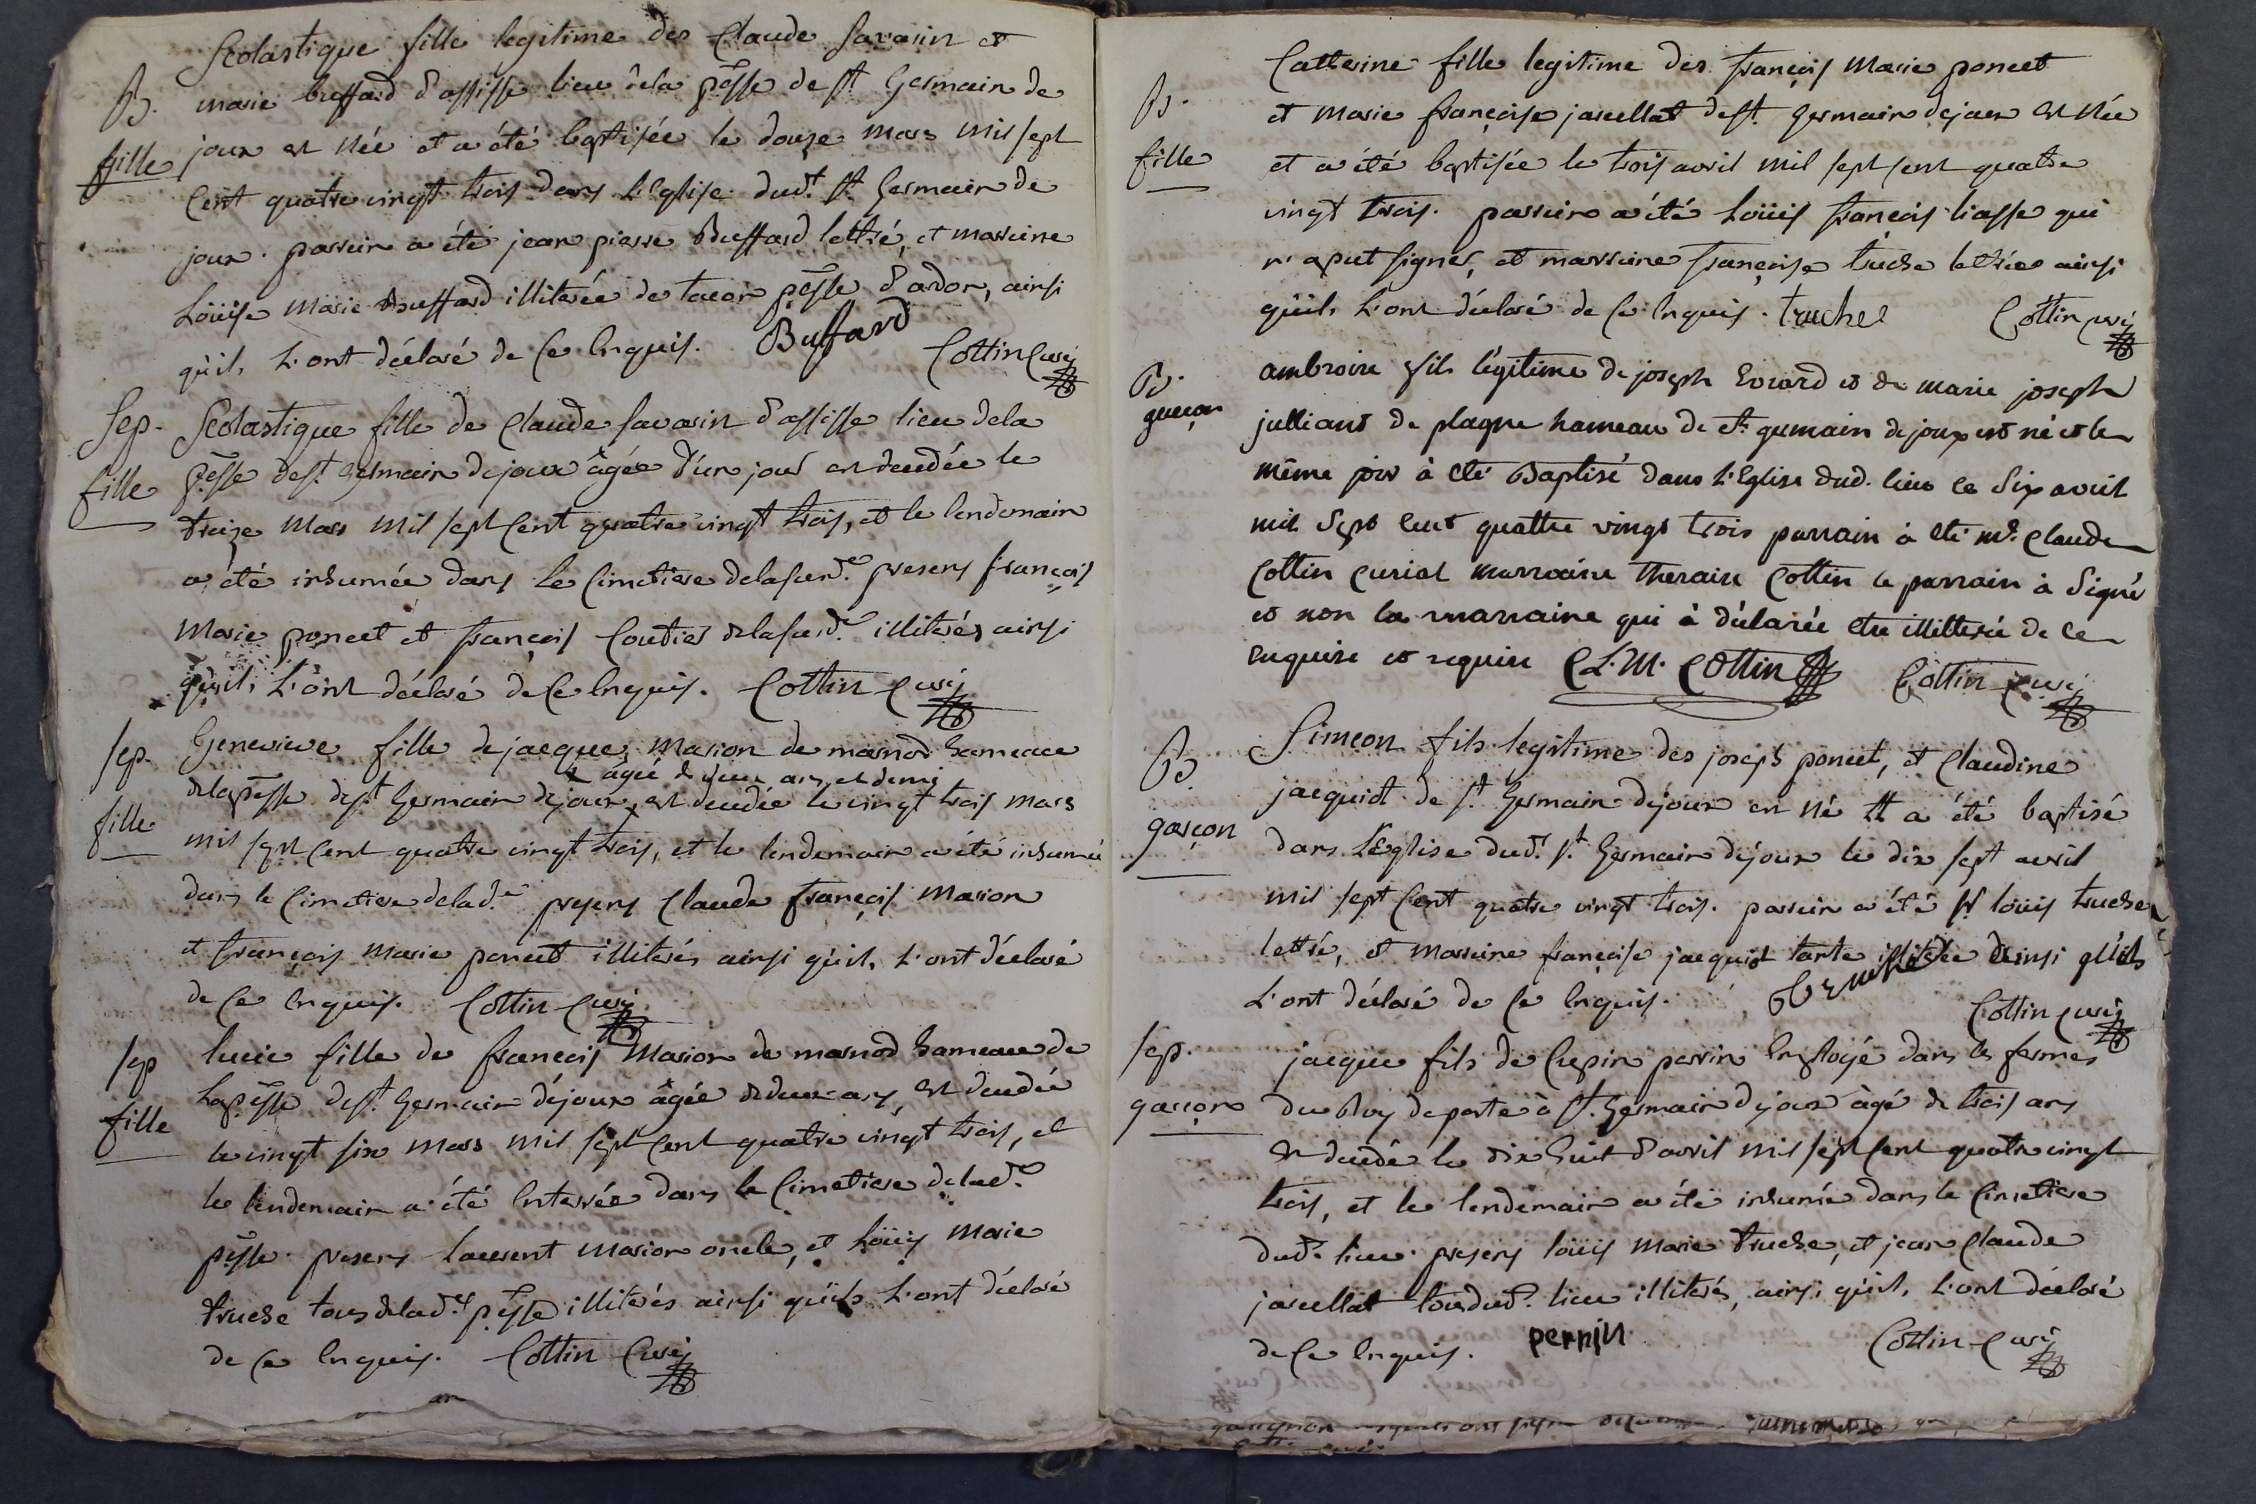 Scolastique fille legitime des Claude Savarin et
B. marie buffard d'assisse lieu dela pesse de st Germain de
fille joux est née et a été baptisée le douze mars mil sept
cent quatre vingt trois dans L'Eglise dudt. st. Germain de
joux. parrein a été jean pierre Buffard lettré, et marreine
Loüise Marie Buffard illiterée de tacon pesse d'ardon, ainsi
qu'ils L'ont déclaré de ce Enquis. Buffard Cottin curé
Sep. Scolastique fille de Claude Savarin d'assisse lieu dela
fille pesse dest. Germain dejoux âgée d'un jour est decedée le
treize Mars mil sept cent quatre vingt trois, et le lendemain
a été inhumée dans le Cimetiere delasusde. presens françois
Marie poncet et françois Coutier delasusde. illiterés ainsi
qu'ils L'ont déclaré de ce Enquis. Cottin Curé
Sep. Genevieve fille de jacques Marion de marnod hameau
âgée de deux ans et demi
delapesse dest Germain dejoux, est decedée le vingt trois mars
fille mil sept cent quatre vingt trois, et le lendemain a été inhumée
dans le Cimetiere delade. presens Claude françois Marion
et françois Marie poncet illiterés ainsi qu'ils L'ont déclaré
de ce Enquis. Cottin Curé
sep lucie fille de françois Marion de marnod hameau de
fille Lapesse dest. Germain déjoux âgée dedeux ans, est decedée
le vingt six Mars mil sept cent quatre vingt trois, et
le lendemain a été Enterrée dans le Cimetiere delade.
pesse. presens laurent Marion oncle, et Loüis Marie
truche tous delade. pesse illiterés ainsi qu'ils L'ont déclaré
de ce Enquis. Cottin Curé
Catherine fille legitime des françois Marie poncet
B. et Marie françoise jarcellat dest. Germain dejoux est Née
fille et a été baptisée le trois avril mil sept cent quatre
vingt trois. parrein a été Loüis françois liasse qui
n'a pu signer, et marreine françoise truche lettrée ainsi
qu'ils L'ont déclaré de ce Enquis. truchel Cottin curé
B. ambroise fils légitime de joseph Evrard et de marie joseph
garçon julliand de plagne hameau de st. germain dejoux est né et le
même jour à eté Baptisé dans L'Eglise dud. lieu ce Six avril
mil Sept cent quattre vingt trois parrain à eté mr. Claude
Cottin Curial marraine theraise Cottin le parrain à Signé
et non la marraine qui à déclarée etre illitterée de ce
enquise et requise CL.M. Cottin Cottin curé
B. Simeon fils legitime des joseph poncet, et Claudine
jacquiot de st. Germain dejoux est Né et a été baptisé
garçon dans L'Eglise dudt. st. Germain dejoux le dix sept avril
mil sept cent quatre vingt trois. parrein a été sr loüis truche
lettré, et marreine françoise jacquiot tante illiterée ainsi qu'ils
L'ont déclaré de ce Enquis. Cottin curé
sep. jacque fils de Crepin perrin Employé dans les fermes
garçon du Roy deposte à st. Germain dejoux âgé de trois ans
est decedé le dix huit d'avril mil sept cent quatre vingt
trois, et le lendemain a été inhumé dans le Cimetiere
dudt. lieu. presens loüis Marie truche, et jean Claude
jarcellat tous dudt. lieu illiterés, ainsi qu'ils L'ont déclaré
de ce Enquis. perrin Cottin curé